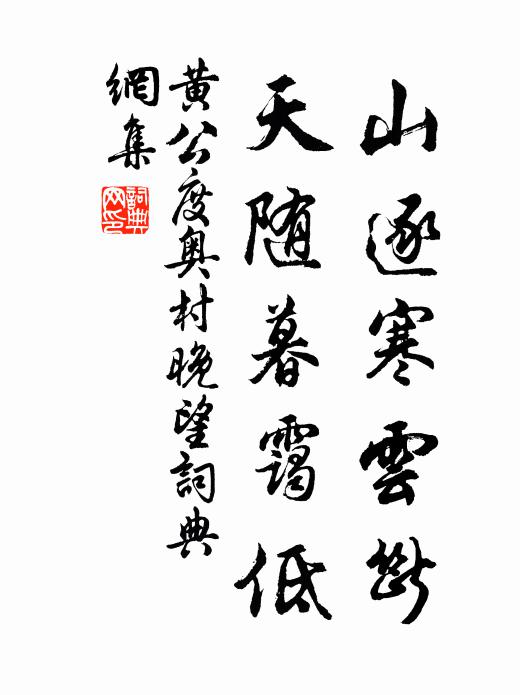 山逐寒雲斷
天随暮靄低
黄公度奥村晚望詞典
網集
詞典
网印